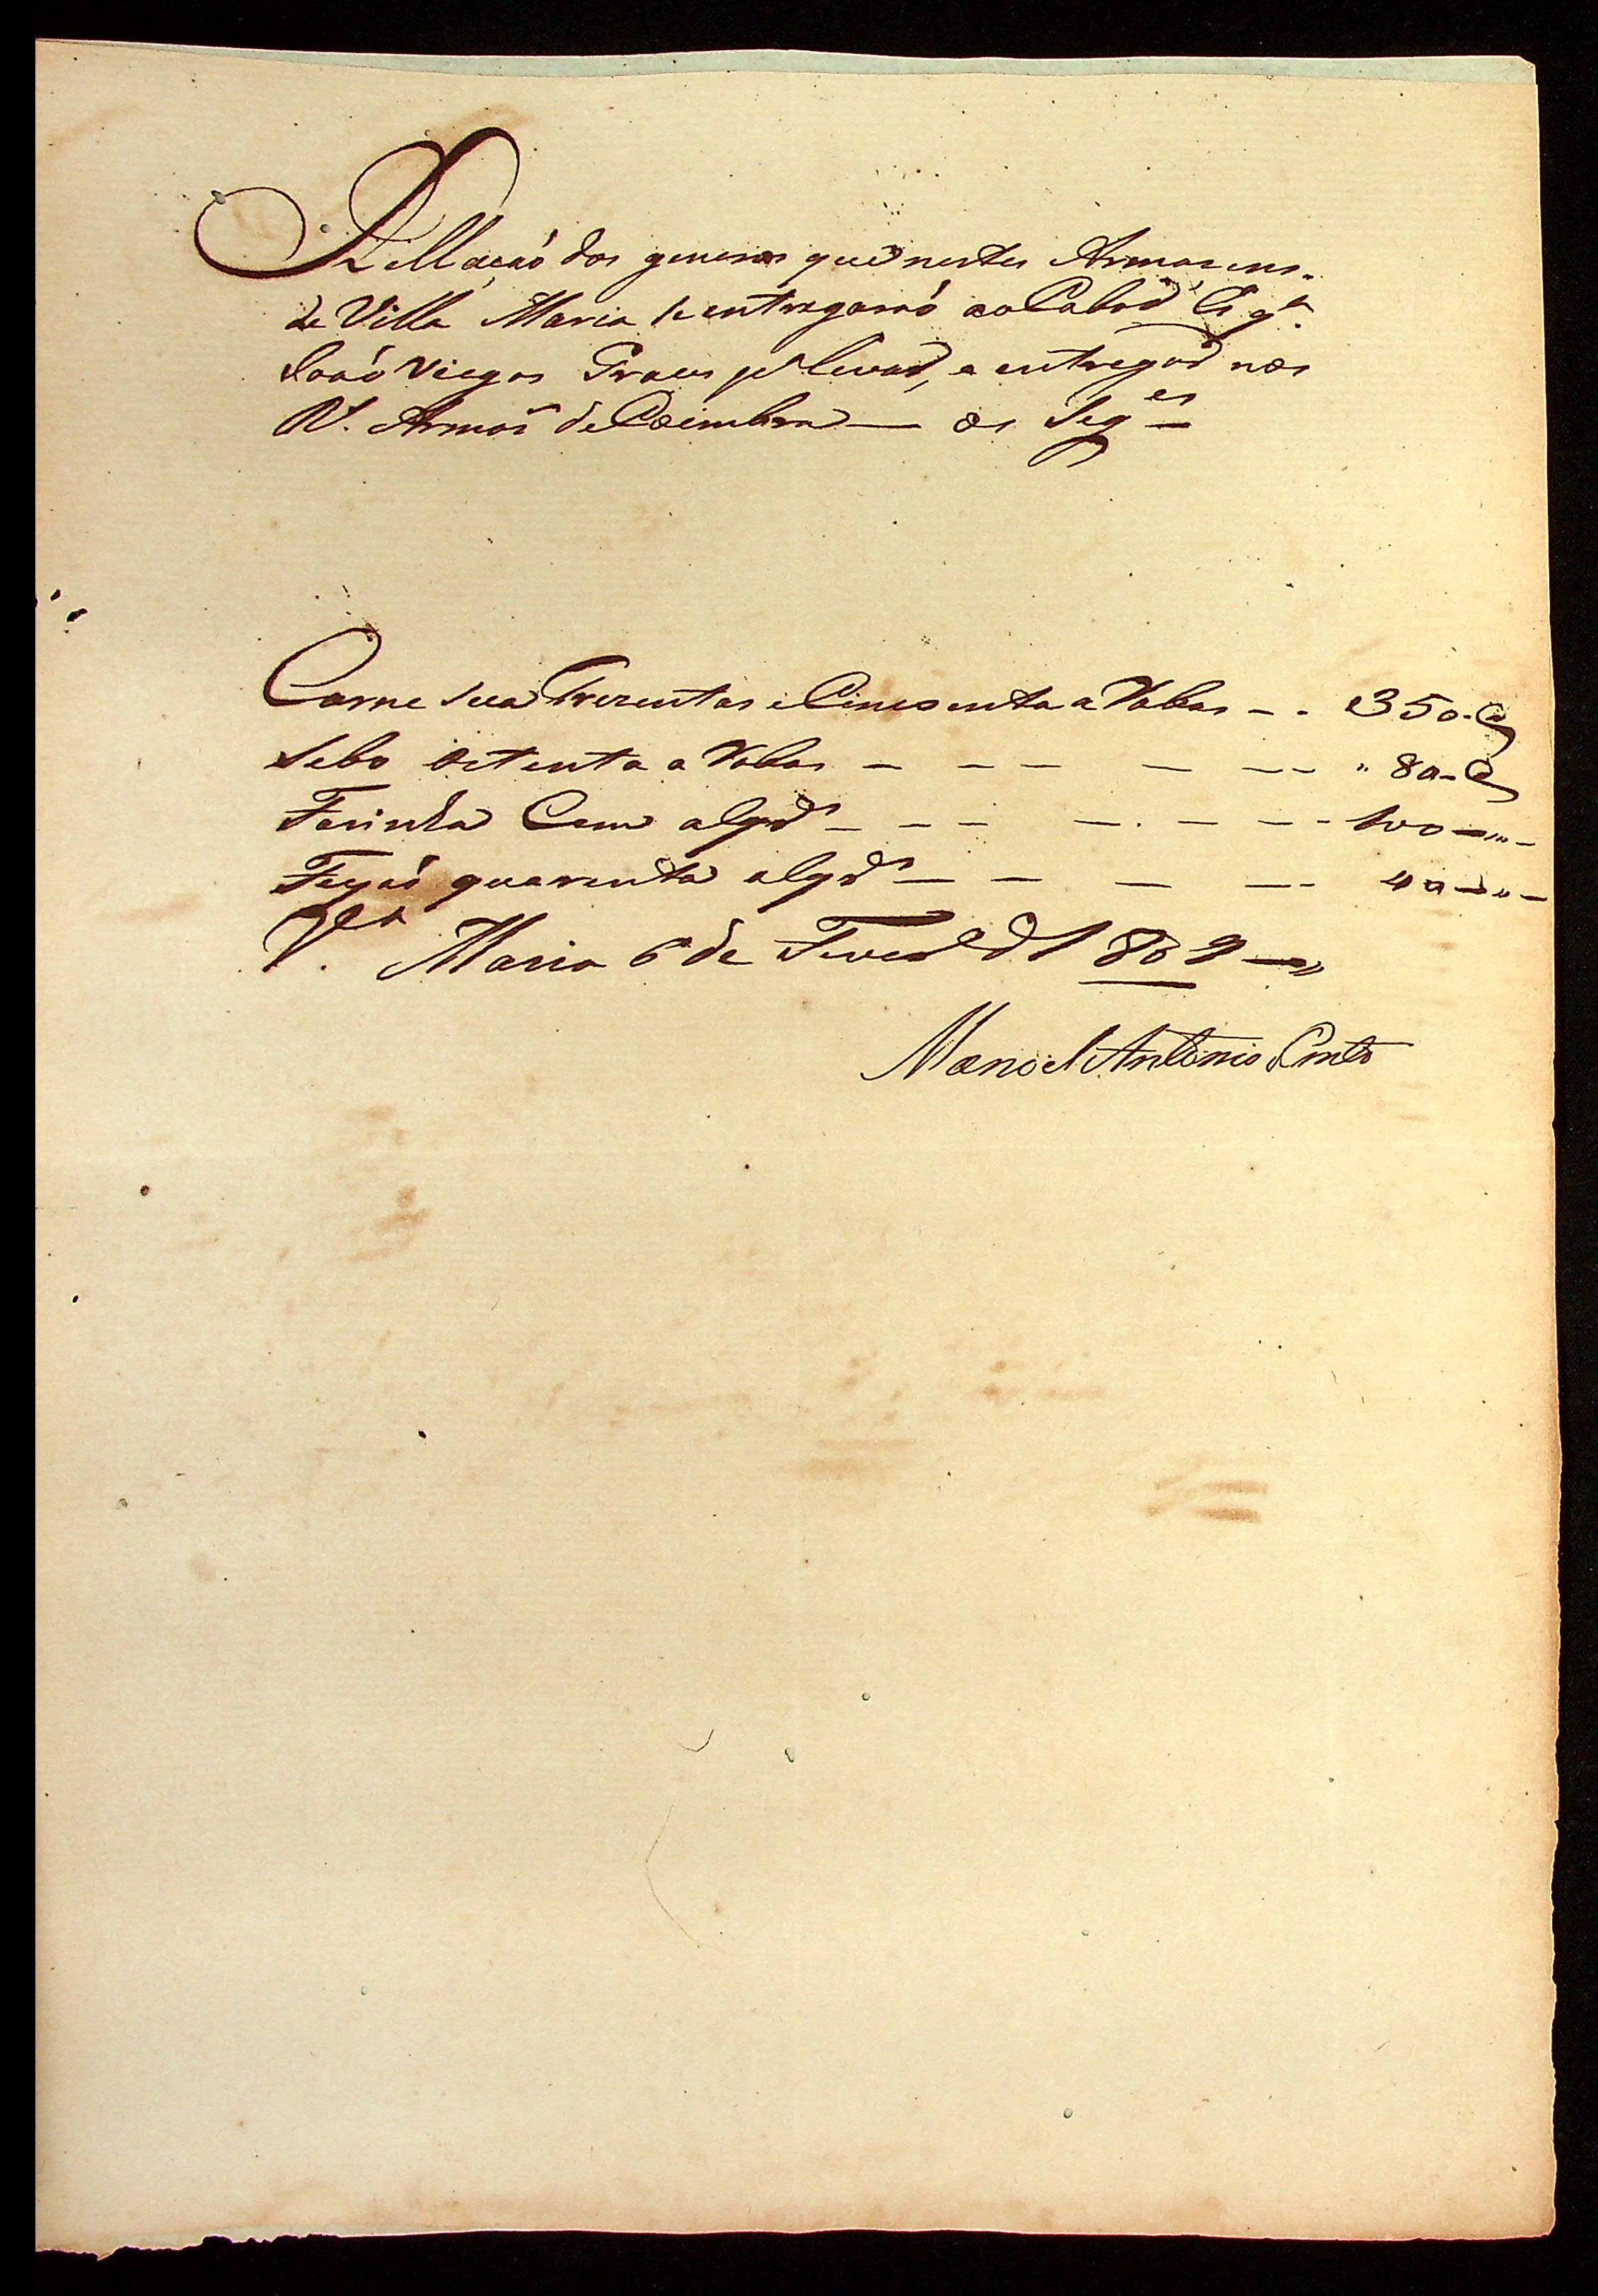 Rellaçaó dos generos que nestes Armasens
de Villa Maria se entregaraó ao Cabod Esqr.ª
Joaó Viegas pª levar, e entregar nos
R. Armas de Coimbra — os Seg.es —
Carne seca Trezentas e Cincoenta aRobas - - 350-@
Sebo Oitenta aRobas — — — — — " 80-@
Farinha Cem alqrs — — — — — — 100 — " —
Feyaó quarenta alqrs — — — — 40 — " —
V.ª Maria 6 de Fevero d 1802 — "
Manoel Antonio Pinto